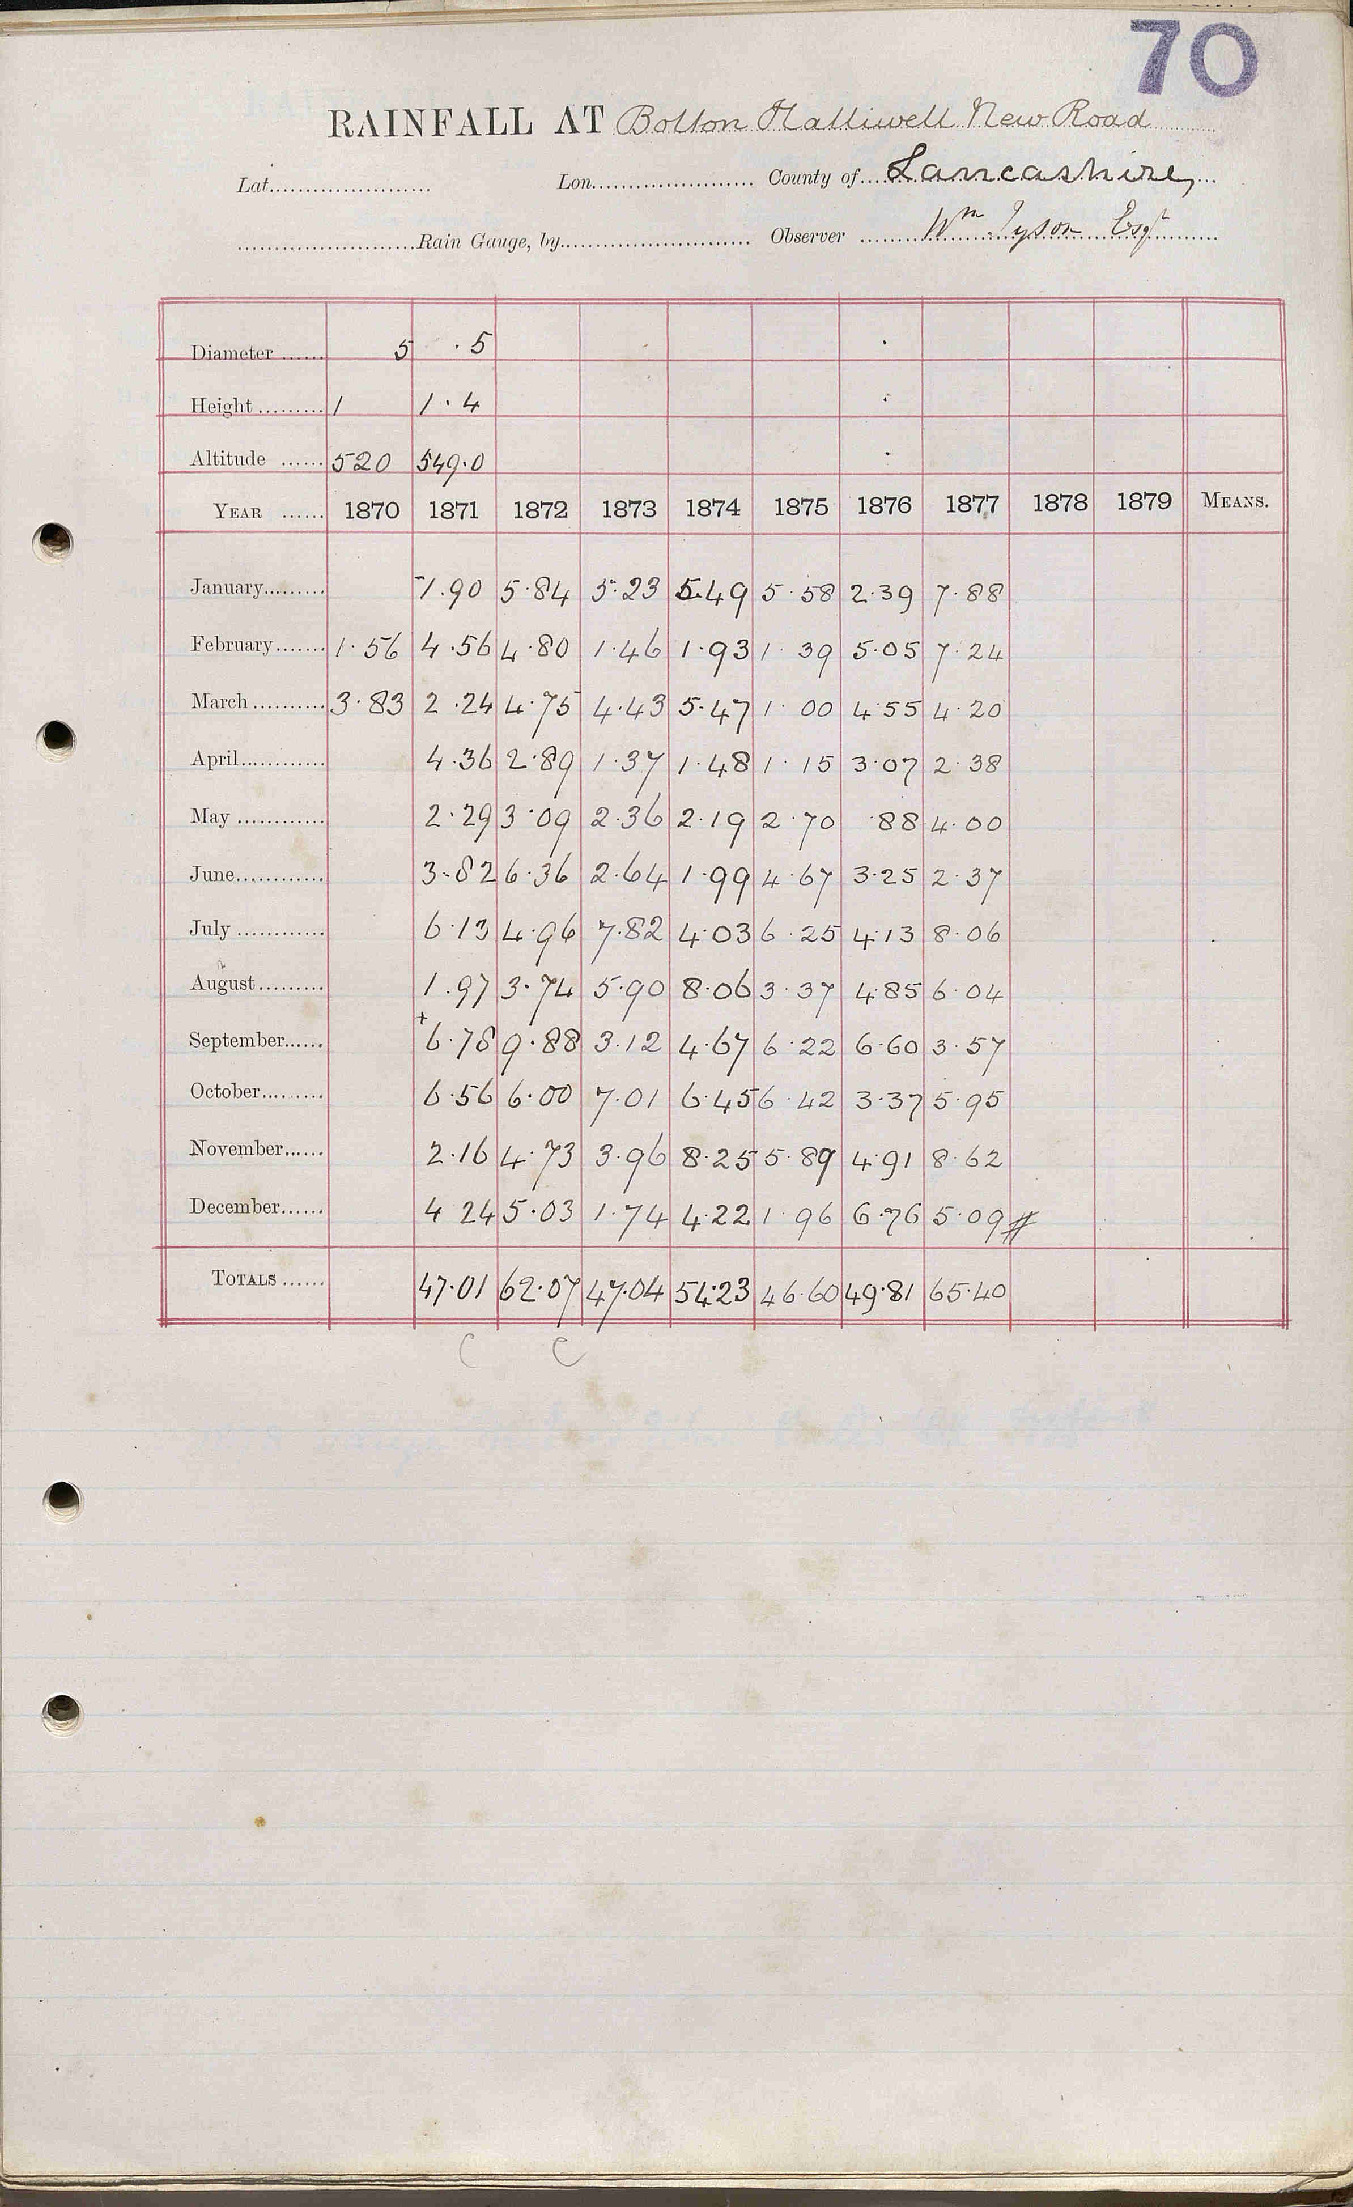 70
RAINFALL AT Bolton Halliwell New Road
Lat. Lon. County of Lancashire,
Rain Gauge, by Observer Wm Tyson Esqr
Diameter 5 .5
Height 1 1.4
Altitude 520 549.0
YEAR 1870 1871 1872 1873 1874 1875 1876 1877 1878 1879 MEANS.
January 1.90 5.84 5.23 5.49 5.58 2.39 7.88
February 1.56 4.56 4.80 1.46 1.93 1.39 5.05 7.24
March 3.83 2.24 4.75 4.43 5.47 1.00 4.55 4.20
April 4.36 2.89 1.37 1.48 1.15 3.07 2.38
May 2.29 3.09 2.36 2.19 2.70 .88 4.00
June 3.82 6.36 2.64 1.99 4.67 3.25 2.37
July 6.13 4.96 7.82 4.03 6.25 4.13 8.06
August 1.97 3.74 5.90 8.06 3.37 4.85 6.04
September +6.78 9.88 3.12 4.67 6.22 6.60 3.57
October 6.56 6.00 7.01 6.45 6.42 3.37 5.95
November 2.16 4.73 3.96 8.25 5.89 4.91 8.62
December 4 24 5.03 1.74 4.22 1.96 6.76 5.09 #
TOTALS 47.01 62.07 47.04 54.23 46.60 49.81 65.40
C C